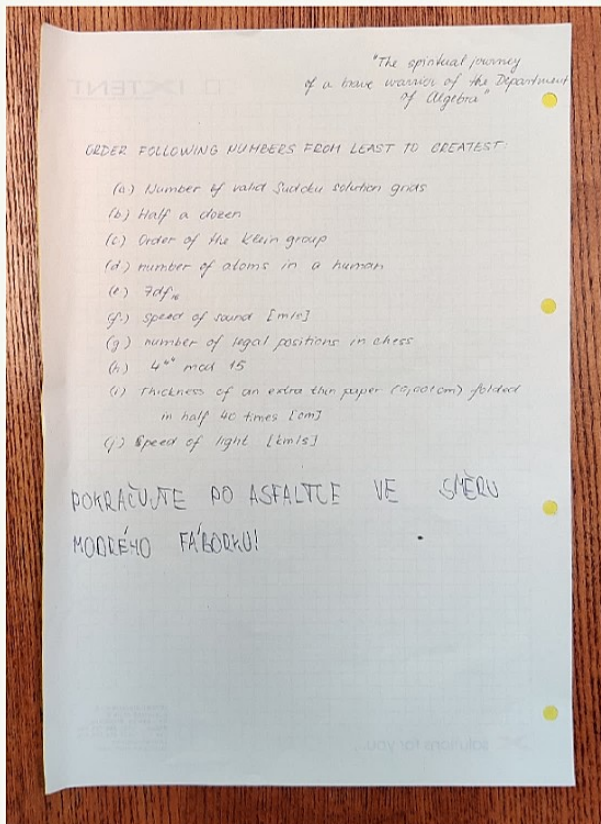 "The spiritual journey
of a brave warrior of the Department
of Algebra"
ORDER FOLLOWING NUMBERS FROM LEAST TO GREATEST:
(a.) Number of valid Sudoku solution grids
(b.) Half a dozen
(c.) Order of the Klein group
(d.) number of atoms in a human
(e.) 7df₁₆
(f.) speed of sound [m/s]
(g.) number of legal positions in chess
(h.) mod 15
(i.) Thickness of an extra thin paper (0,001cm) folded
in half 40 times [cm]
(j.) Speed of light [km/s]
POKRAČUJTE PO ASFALTCE VE SMĚRU
MODRÉHO FÁBORKU!
IXTENT
solutions for you...